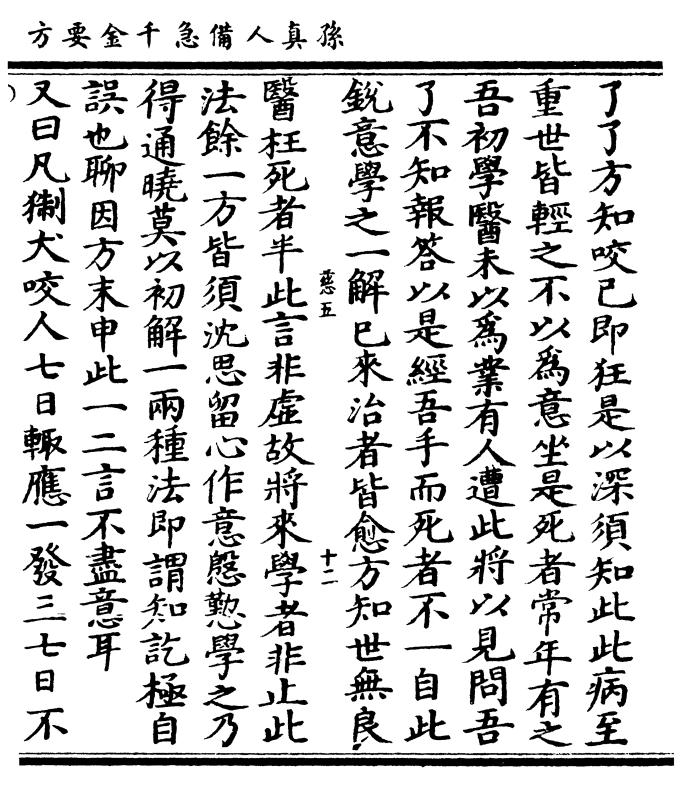 孫真人備急千金要方
了了方知咬已即狂是以深須知此此病至
重世皆輕之不以為意坐是死者常年有之
吾初學醫未以為業有人遭此將以見問吾
了不知報答以是經吾手而死者不一自此
銳意學之一解已來治者皆愈方知世無良
惡五
十二
醫枉死者半此言非虛故將來學者非止此
法餘一方皆須沈思留心作意慇懃學之乃
得通曉莫以初解一兩種法即謂知訖極自
誤也聊因方末申此一二言不盡意耳
又曰凡猘犬咬人七日輙應一發三七日不